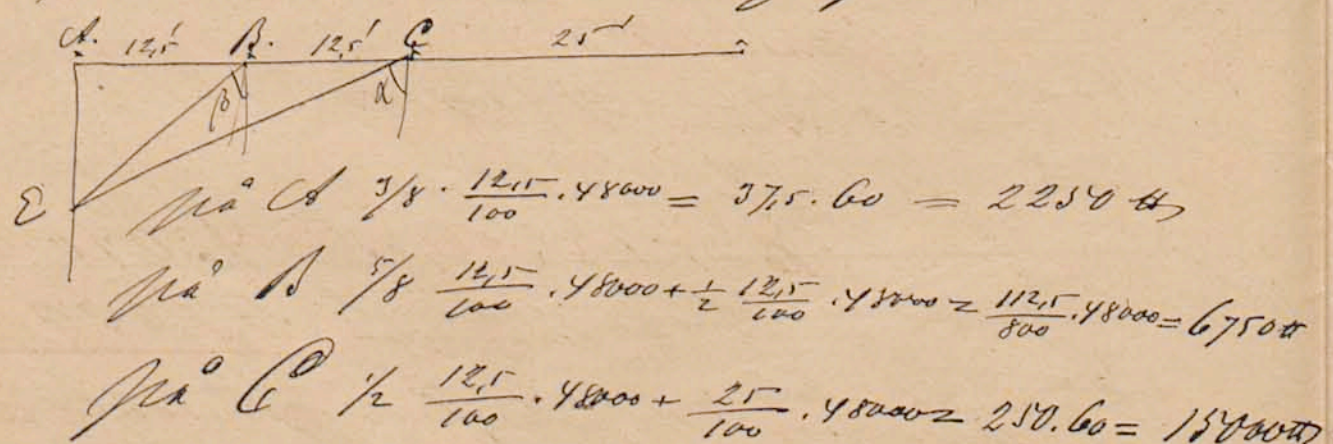 A. 12,5' B. 12,5' C 25'
β α
E
på A 3/8 · 12,5/100 · 48000 = 37,5 · 60 = 2250 ℔
på B 5/8 12,5/100 · 48000 + 1/2 12,5/100 · 48000 = 112,5/800 · 48000 = 6750 ℔
på C 1/2 12,5/100 · 48000 + 25/100 · 48000 = 250 · 60 = 15000 ℔